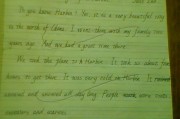 Do you know Harbin? Yes, it is a very beautiful city
in the north of China. I went there with my family two
years ago. And we had a great time there.
We took the plane to Harbin. It took us about four
hours to get there. It was very cold in Harbin. It
snowed and snowed all day long. People were
sweaters and